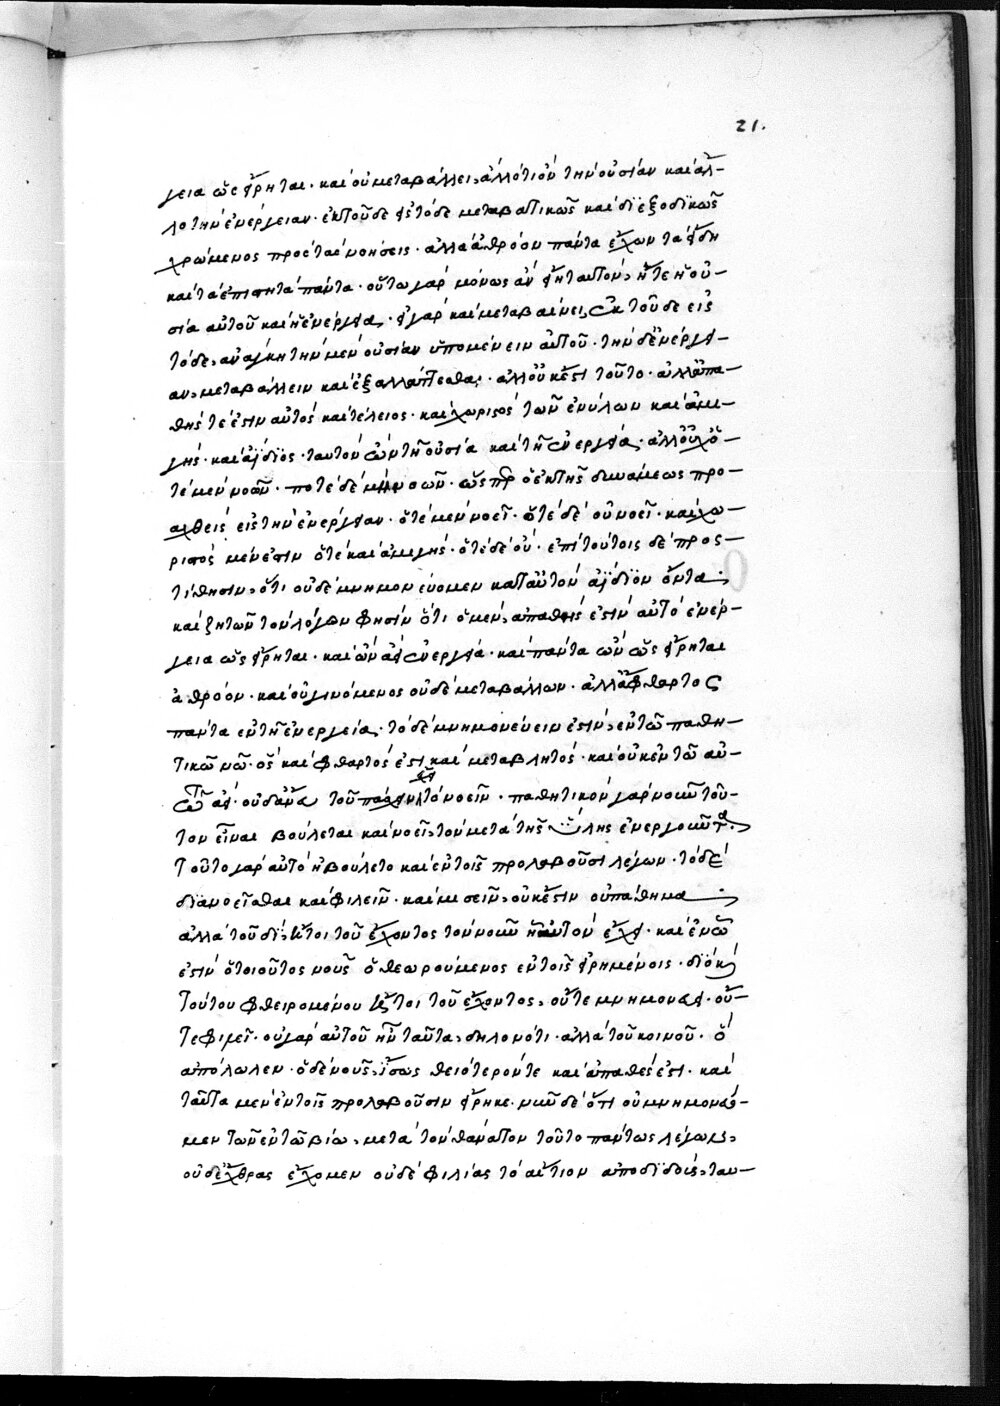 21.
γεια ὡς εἴρηται. καὶ οὐ μεταβάλλει, ἄλλό τι ὂν τὴν οὐσίαν καὶ ἄλ-
λο τὴν ἐνέργειαν. ἐκ τοῦδε εἰς τόδε μεταβατικῶς καὶ διεξοδικῶς
χρώμενος πρὸς τὰς νοήσεις. ἀλλὰ ἀθρόον πάντα ἔχων τὰ εἴδη
καὶ τὰ ἐπιστητὰ πάντα. οὕτω γὰρ μόνως ἂν εἴη ταὐτὸν, ἥ τε ἡ οὐ-
σία αὐτοῦ καὶ ἡ ἐνέργεια. εἰ γὰρ καὶ μεταβαίνει ἐκ τοῦδε εἰς
τόδε, ἀνάγκη τὴν μὲν οὐσίαν ὑπομένειν αὐτοῦ. τὴν δ' ἐνέργει-
αν, μεταβάλλειν καὶ ἐξαλλάττεσθαι. ἀλλ' οὐκ ἔστι τοῦτο. ἀλλ' ἀπα-
θής τέ ἐστιν αὐτὸς καὶ τέλειος. καὶ χωριστὸς τῶν ἐνύλων καὶ ἀμι-
γής. καὶ ἀΐδιος. ταυτὸν ὢν τῇ οὐσίᾳ καὶ τῇ ἐνεργείᾳ. ἀλλ' οὐχ ὅ-
τε μὲν νοῶν. ποτὲ δὲ μὴ νοῶν. ὥσπερ ὁ ἐκ τῆς δυνάμεως προ-
αχθεὶς εἰς τὴν ἐνέργειαν. ὅτε μὲν νοεῖ. ὅτε δὲ οὐ νοεῖ. καὶ χω-
ριστὸς μέν ἐστιν ὅτε καὶ ἀμιγής. ὅτε δὲ οὔ. ἐπὶ τούτοις δὲ προς-
τίθησιν, ὅτι οὐδὲ μνημονεύομεν κατ' αὐτὸν ἀΐδιον ὄντα.
καὶ ζητῶν τὸν λόγον φησὶν ὅτι ὁ μὲν, ἀπαθής ἐστιν αὐτὸ ἐνέρ-
γεια ὡς εἴρηται. καὶ ὢν ἀεὶ ἐνεργείᾳ. καὶ πάντα ὢν ὡς εἴρηται
ἀθρόον. καὶ οὐ γινόμενος οὐδὲ μεταβάλλων. ἀλλ' ἄφθαρτος
πάντα ἐν τῇ ἐνεργείᾳ. τὸ δὲ μνημονεύειν ἐστὶν, ἐν τῷ παθη-
τικῷ νῷ. ὃς καὶ φθαρτός ἐστι καὶ μεταβλητός. καὶ οὐκ ἐν τῷ αὐ-
τῷ ἀεί. οὐδ' ἄνευ τοῦ πάσχειν ἔχει τὸ νοεῖν. παθητικὸν γὰρ νοῦν τοῦ-
τον εἶναι βούλεται καὶ νοεῖ, τὸν μετὰ τῆς ὕλης ἐνεργοῦντα.
τοῦτο γὰρ αὐτὸ ἠβούλετο καὶ ἐν τοῖς προλαβοῦσι λέγων. τὸ δὲ
διανοεῖσθαι καὶ φιλεῖν. καὶ μισεῖν, οὐκ ἔστιν οὗ πάθημα
ἀλλὰ τοῦ δί, ἤτοι τοῦ ἔχοντος τὸν νοῦν ᾗ αὐτὸν ἔχει. καὶ ἐν ᾧ
ἐστὶν ὁ τοιοῦτος νοῦς ὁ θεωρούμενος ἐν τοῖς εἰρημένοις. διὸ καὶ
τούτου φθειρομένου ἤτοι τοῦ ἔχοντος, οὔτε μνημονεύει. οὔ-
τε φιλεῖ. οὐ γὰρ αὐτοῦ ἦν ταῦτα, δηλονότι. ἀλλὰ τοῦ κοινοῦ. ὃ
ἀπόλωλεν. ὁ δὲ νοῦς, ἴσως θειότερόν τε καὶ ἀπαθές ἐστι. καὶ
ταῦτα μὲν ἐν τοῖς προλαβοῦσιν εἴρηκε. νῦν δὲ ὅτι οὐ μνημονεύο-
μεν τῶν ἐν τῷ βίῳ, μετὰ τὸν θάνατον τοῦτο πάντως λέγωμεν,
οὐδ' ἔχθρας ἔχομεν οὐδὲ φιλίας τὸ αἴτιον ἀποδιδοὺς, ταυ-